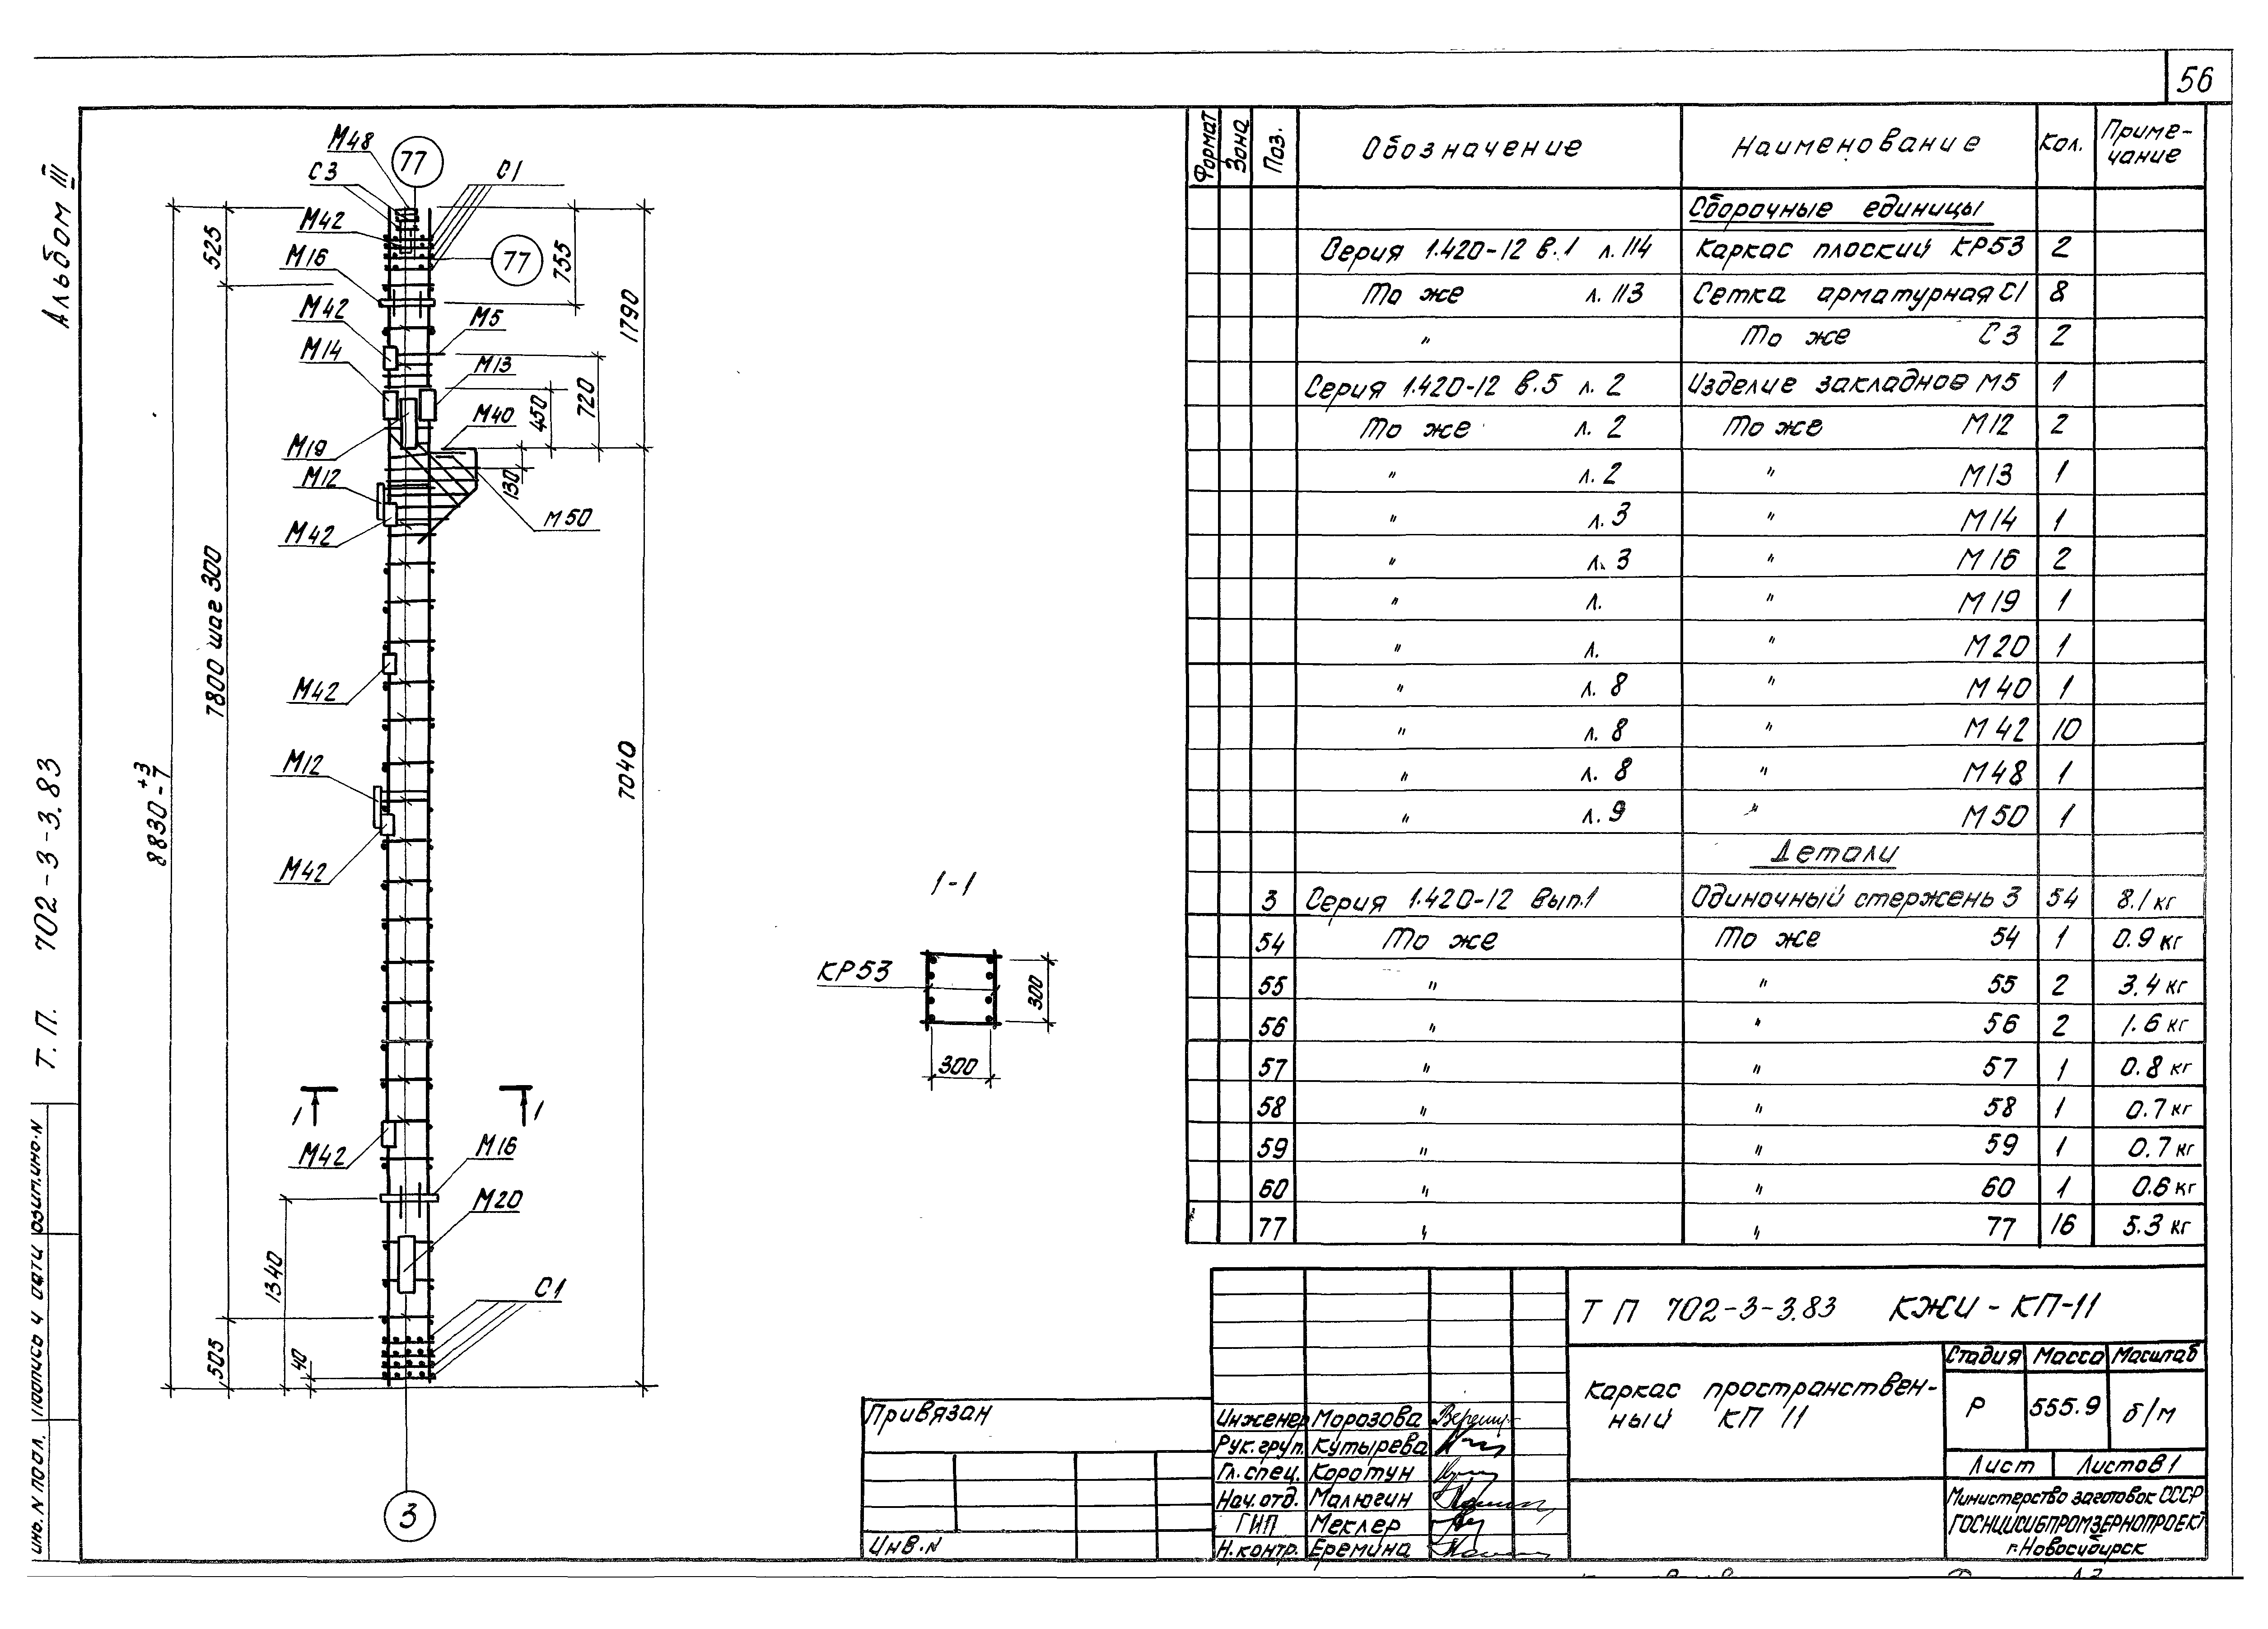 56
Альбом III
Т.П. 702-3-3.83
Инв.N подл.
М48
77
С3
С1
М42
77
М16
М42
М5
М14
М13
М40
М19
М12
М50
М42
М42
М12
М42
М42
М16
М20
С1
3
525
755
1790
720
450
130
7800 шаг 300
8830 +3 -7
7040
1340
505
40
1 1
1-1
КР53
300
300
Формат Зона Поз. Обозначение Наименование Кол. Приме-чание
Сборочные единицы
Серия 1.420-12 в.1 л.114 Каркас плоский КР53 2
То же л.113 Сетка арматурная С1 8
" То же С3 2
Серия 1.420-12 в.5 л.2 Изделие закладное М5 1
То же л.2 То же М12 2
" л.2 " М13 1
" л.3 " М14 1
" л.3 " М16 2
" л. " М19 1
" л. " М20 1
" л.8 " М40 1
" л.8 " М42 10
" л.8 " М48 1
" л.9 " М50 1
Детали
3 Серия 1.420-12 Вып.1 Одиночный стержень 3 54 8.1 кг
54 То же То же 54 1 0.9 кг
55 " " 55 2 3.4 кг
56 " " 56 2 1.6 кг
57 " " 57 1 0.8 кг
58 " " 58 1 0.7 кг
59 " " 59 1 0.7 кг
60 " " 60 1 0.6 кг
77 " " 77 16 5.3 кг
ТП 702-3-3.83 КЖИ-КП-11
Каркас пространствен-
ный КП 11
Стадия Масса Масштаб
Р 555.9 б/м
Лист Листов 1
Министерство заготовок СССР
ГОСНИИСИБПРОМЗЕРНОПРОЕКТ
г.Новосибирск
Инженер Морозова
Рук.груп. Кутырева
Гл.спец. Коротун
Нач.отд. Малюгин
ГИП Меклер
Н.контр. Еремина
Привязан
Инв.N